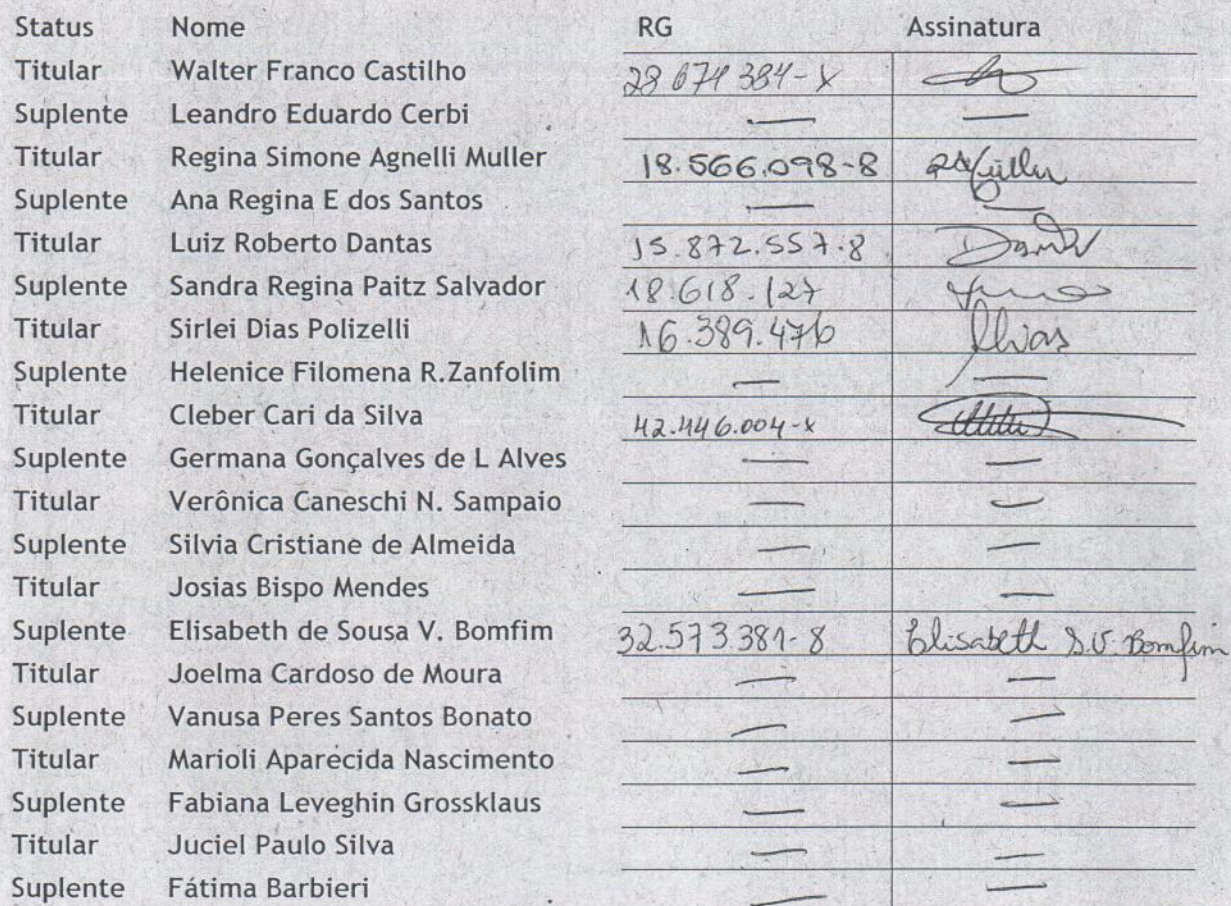 Status Nome RG Assinatura
Titular Walter Franco Castilho 28 674 384-x
Suplente Leandro Eduardo Cerbi —
Titular Regina Simone Agnelli Muller 18.566.098-8
Suplente Ana Regina E dos Santos — —
Titular Luiz Roberto Dantas 15.872.557.8
Suplente Sandra Regina Paitz Salvador 18.618.127
Titular Sirlei Dias Polizelli 16.389.476
Suplente Helenice Filomena R.Zanfolim — —
Titular Cleber Cari da Silva 42.446.004-x
Suplente Germana Gonçalves de L Alves — —
Titular Verônica Caneschi N. Sampaio — —
Suplente Silvia Cristiane de Almeida — —
Titular Josias Bispo Mendes — —
Suplente Elisabeth de Sousa V. Bomfim 32.573.381-8 Elisabeth S.V. Bomfim
Titular Joelma Cardoso de Moura — —
Suplente Vanusa Peres Santos Bonato — —
Titular Marioli Aparecida Nascimento — —
Suplente Fabiana Leveghin Grossklaus — —
Titular Juciel Paulo Silva — —
Suplente Fátima Barbieri — —